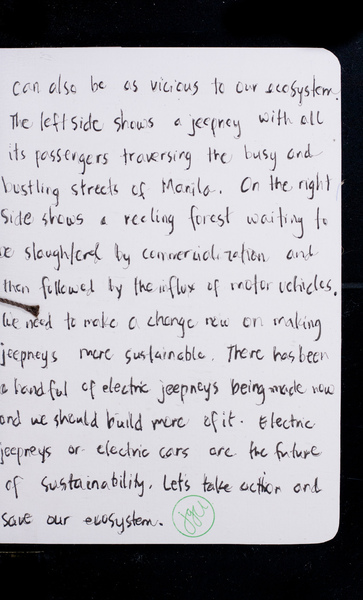 can also be as vicious to our ecosystem.
The left side shows a jeepney with all
its passengers traversing the busy and
bustling streets of Manila. On the right
side shows a reeling forest waiting to
be slaughtered by commercialization and
then followed by the influx of motor vehicles.
We need to make a change now on making
jeepneys more sustainable. There has been
a handful of electric jeepneys being made now
and we should build more of it. Electric
jeepneys or electric cars are the future
of sustainability. Let's take action and
save our ecosystem.